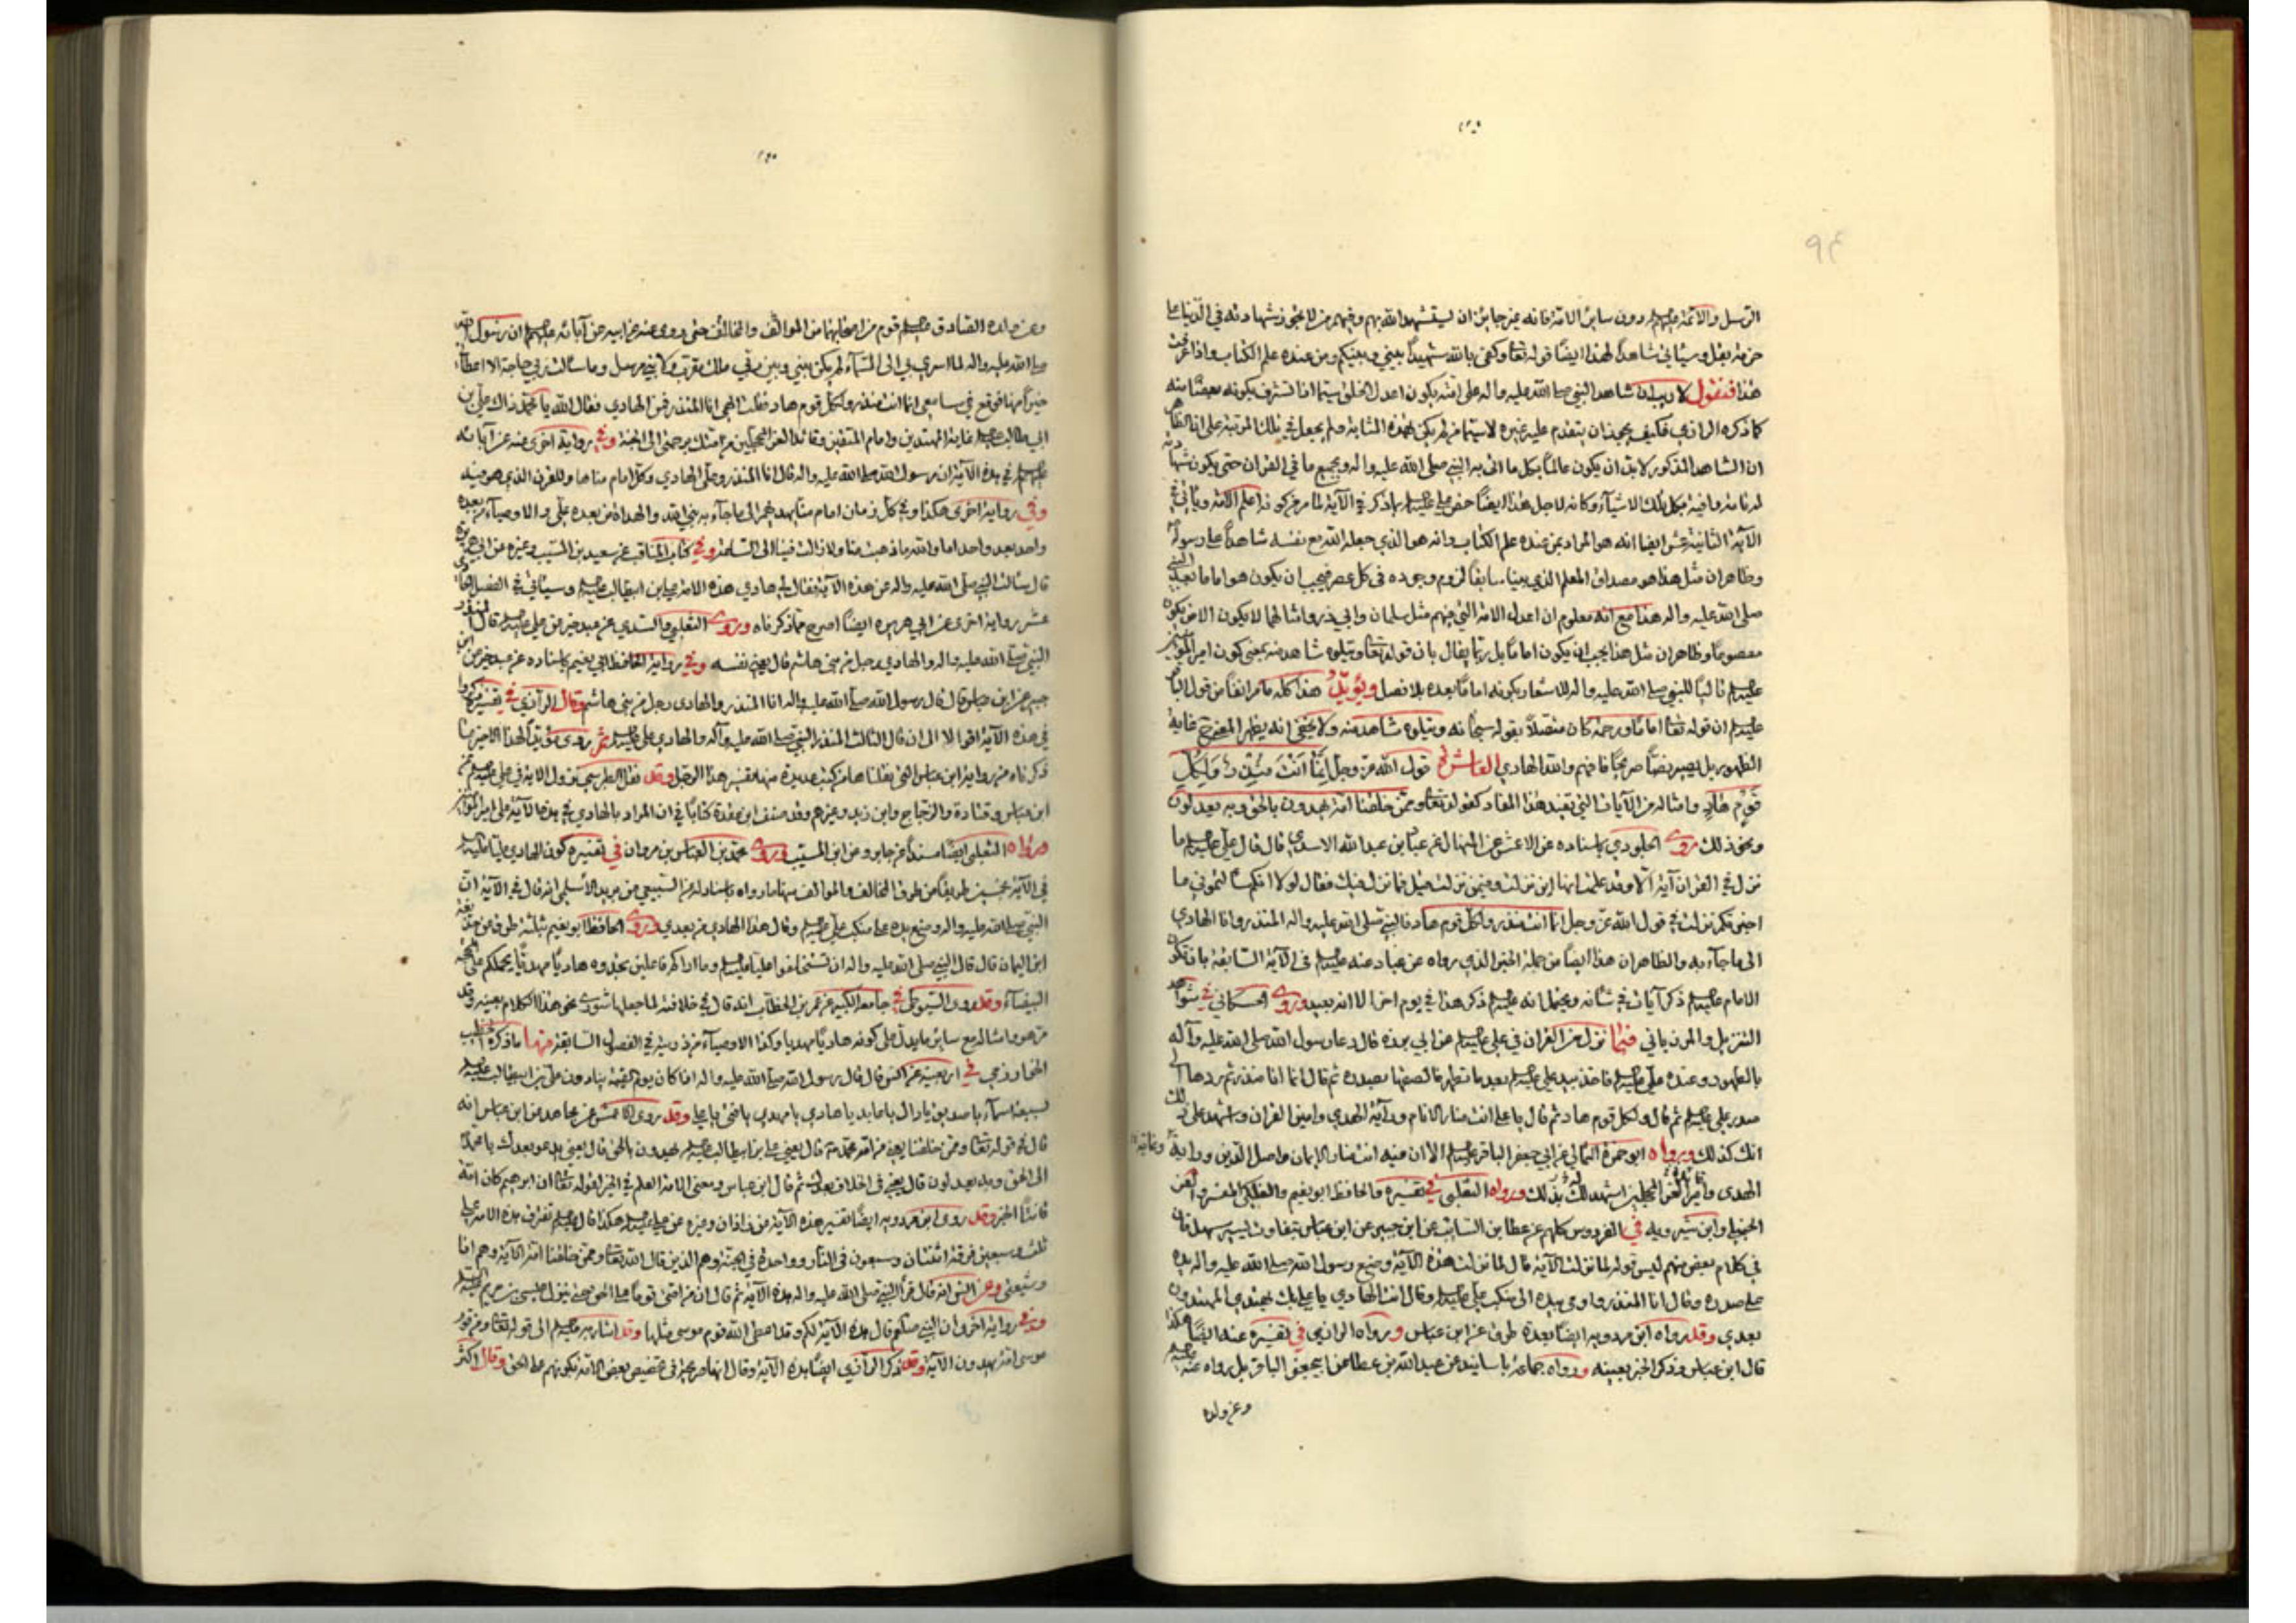 الرسل والأئمة عليهم دون سائر الامة فانه غير جائز ان يستشهد الله بهم وفيهم من لا يجوز شهادته في الدنيا على
حزمة بقل وسيأتي شاهدا لهذا ايضا قوله تعا وكفى بالله شهيدا بيني وبينكم ومن عنده علم الكتاب واذا عرفت
هذا فنقول لا ريب ان شاهد النبي صلى الله عليه واله على امته يكون اعدل الخلق سيما اذا تشرف بكونه بعضا منه
كما ذكره الرازي فكيف يجوز ان يتقدم عليه غيره لاسيما من لم يكن بهذه المثابة ولم يجعل في تلك المرتبة على ان الظاهر
ان الشاهد المذكور لابد ان يكون عالما بكل ما اتى به النبي صلى الله عليه واله وبجميع ما في القران حتى يكون شهادته
له تامة وافية بكل تلك الاشياء وكانه لاجل هذا ايضا خص علي عليه بما ذكر في الآية لما مر من كونه اعلم الامة ويأتي في
الآية الثانية عشر ايضا انه هو المراد بمن عنده علم الكتاب وانه هو الذي جعله الله مع نفسه شاهدا على رسوله
وظاهر ان مثل هذا هو مصداق المعلم الذي بينا سابقا لزوم وجوده في كل عصر فيجب ان يكون هو اماما بعد النبي
صلى الله عليه واله هذا مع انه معلوم ان اعدل الامة التي فيهم مثل سلمان وابي ذر وامثالهما لا يكون الا من يكون
معصوما وظاهر ان مثل هذا يجب ان يكون اماما بل ربما يقال بان قوله تعا ويتلوه شاهد منه بمعنى كون امير المؤمنين
عليه تاليا للنبي صلى الله عليه واله للاشعار بكونه اماما بعده بلا فصل ويؤيد هذا كله ما مر انفا من قول الباقر
عليه ان قوله تعا اماما ورحمة كان متصلا بقوله سبحانه ويتلوه شاهد منه ولا يخفى انه يظهر المقصود غاية
الظهور بل يصير نصا صريحا فافهم والله الهادي العاشرة قول الله عز وجل إِنَّمَا أَنْتَ مُنْذِرٌ وَلِكُلِّ
قَوْمٍ هَادٍ وامثاله من الآيات التي تفيد هذا المفاد كقوله تعا وممن خلقنا امة يهدون بالحق وبه يعدلون
ونحو ذلك روى الجلودي باسناده عن الاعمش عن المنهال عن عباد بن عبد الله الاسدي قال قال علي عليه ما
نزل في القران آية الا وقد علمت اين نزلت وفيمن نزلت قيل فما نزل فيك فقال لولا انكم سألتموني ما
اخبرتكم نزلت في قول الله عز وجل انما انت منذر ولكل قوم هاد فالنبي صلى الله عليه واله المنذر وانا الهادي
الى ما جاء به والظاهر ان هذا ايضا من جملة الخبر الذي رواه عن عباد عنه عليه في الآية السابقة بان يكون
الامام عليه ذكر آيات في شأنه ويحتمل انه عليه ذكر هذا في يوم اخر الا انه بعيد وروى الحسكاني في شواهد
التنزيل والمرزباني فيما نزل من القران في علي عليه عن ابي برزة قال دعا رسول الله صلى الله عليه وآله
بالطهور وعنده علي عليه فاخذ بيد علي عليه بعد ما تطهر فالصقها بصدره ثم قال انما انا منذر ثم ردها الى
صدر علي عليه ثم قال ولكل قوم هاد ثم قال يا علي انت منار الانام وراية الهدى وامين القران واشهد على ذلك
انك كذلك ورواه ابو حمزة الثمالي عن ابي جعفر الباقر عليه الا ان فيه انت منار الايمان واصل الدين وراية
وغاية
الهدى وقائد الغر المحجلين اشهد لك بذلك ورواه الثعلبي في تفسيره والحافظ ابو نعيم والفلكي المفسر
وابن شيرويه في الفردوس كلهم عن عطا بن السائب عن ابن جبير عن ابن عباس بتفاوت يسير سهل فان
في كلام بعض منهم ليس قوله لما نزلت الآية قال لما نزلت هذه الآية وضع رسول الله صلى الله عليه واله يده
على صدره وقال انا المنذر واومى بيده الى منكب علي عليه وقال انت الهادي يا علي بك يهتدي المهتدون
بعدي وقد رواه ابن مردويه ايضا بعدة طرق عن ابن عباس ورواه الرازي في تفسيره عنه ايضا هكذا
قال ابن عباس وذكر الخبر بعينه ورواه جماعة باسانيد عن عبد الله بن عطا عن ابي جعفر الباقر بل رواه عنه
وعن ولده
وعن ولده الصادق عليه قوم من اصحابهما من الموالف والمخالف حتى روى عنه عن ابيه عن آبائه عليهم ان رسول الله
صلى الله عليه واله لما اسري بي الى السماء لم يكن بيني وبين ربي ملك مقرب ولا نبي مرسل وما سألت ربي حاجة الا اعطاني
خيرا منها فوقع في مسامعي انما انت منذر ولكل قوم هاد فقلت الهي انا المنذر فمن الهادي فقال الله يا محمد ذاك علي بن
ابي طالب عليه غاية المهتدين وامام المتقين وقائد الغر المحجلين من امتك برحمتي الى الجنة وفي رواية اخرى عنه عن آبائه
عليهم في هذه الآية ان رسول الله صلى الله عليه واله قال انا المنذر وعلي الهادي وكل امام منا هاد للقرن الذي هو فيه
وفي رواية اخرى هكذا وفي كل زمان امام منا يهديهم الى ما جاء به نبي الله والهداة من بعده علي والاوصياء من بعده
واحد بعد واحد اما والله ما ذهبت منا ولا زالت فينا الى الساعة وفي كتاب المناقب عن سعيد بن المسيب وغيره عن ابي هريرة
قال سألت النبي صلى الله عليه واله عن هذه الآية فقال لي هادي هذه الامة علي بن ابيطالب عليه وسيأتي في الفصل
عشر رواية اخرى عن ابي هريرة ايضا اصرح مما ذكرناه وروى الثعلبي والسدي عن عبد خير عن علي عليه قال المنذر
النبي صلى الله عليه واله والهادي رجل من بني هاشم قال يعني نفسه وفي رواية الحافظ ابي نعيم باسناده عن
جبير عن ابن عباس قال قال رسول الله صلى الله عليه واله انا المنذر والهادي رجل من بني هاشم وقال الرازي في تفسيره ذكروا
في هذه الآية اقوالا الى ان قال الثالث المنذر النبي صلى الله عليه وآله والهادي علي عليه ثم روى مؤيدا لهذا الاخير ما
ذكرناه من رواية ابن عباس التي نقلناها من كتب عديدة منها تفسير هذا الرجل وقد نقل الطبرسي نزول الآية في علي عليه عن
ابن عباس وقتادة والزجاج وابن زيد وغيرهم وقد صنف ابن عقدة كتابا في ان المراد بالهادي في هذه الآية علي امير المؤمنين
ورواه الثعلبي ايضا مسندا عن جابر وعن ابن المسيب وروى محمد بن العباس بن مروان في تفسيره كون الهادي عليا عليه
في الآية بخمسين طريقا من طرق المخالف والموالف منها ما رواه باسناده عن السبيعي عن بريدة الاسلمي انه قال في الآية ان
النبي صلى الله عليه واله وضع يده على منكب علي عليه وقال هذا الهادي من بعدي وروى الحافظ ابو نعيم بثلثة طرق عن حذيفة
ابن اليمان قال قال النبي صلى الله عليه واله ان تستخلفوا عليا عليه وما اراكم فاعلين تجدوه هاديا مهديا يحملكم على المحجة
البيضاء وقد روى السيوطي في جامعه الكبير عن عمر بن الخطاب انه قال في خلافته لما جعلها شورى نحو هذا الكلام بعينه وقد
مر هو وامثاله مع سائر ما يدل على كونه هاديا مهديا وكذا الاوصياء من ذريته في الفصول السابقة منها ما ذكره اخطب
الخوارزمي في اربعينه عن انس قال قال رسول الله صلى الله عليه واله اذا كان يوم القيمة ينادون علي بن ابيطالب عليه
بسبعة اسماء يا صديق يا دال يا عابد يا هادي يا مهدي يا فتى يا علي وقد روى الاعمش عن مجاهد عن ابن عباس انه
قال في قوله تعا وممن خلقنا يعني من امة محمد امة قال يعني علي بن ابيطالب عليه يهدون بالحق قال يعني يدعو بعدك يا محمد
الى الحق وبه يعدلون قال يعني في الخلاف بعدك ثم قال ابن عباس ومعنى الامة العلم في الخير لقوله تعا ان ابراهيم كان امة
قانتا الخبر وقد روى ابن مردويه ايضا تفسير هذه الآية عن زاذان وغيره عن علي عليه هكذا قال عليه تفترق هذه الامة على
ثلث وسبعين فرقة اثنتان وسبعون في النار وواحدة في الجنة وهم الذين قال الله تعا وممن خلقنا امة الآية وهم انا
وشيعتي وعن انس انه قال قرأ النبي صلى الله عليه واله هذه الآية ثم قال ان من امتي قوما على الحق حتى ينزل عيسى بن مريم عليه
وفي رواية اخرى ان النبي صلعم قال هذه الآية لكم وقد اعطى الله قوم موسى مثلها وقد اشار به عليه الى قوله تعا ومن قوم
موسى امة يهدون الآية وقد ذكر الرازي ايضا هذه الآية وقال انها صريحة في تخصيص بعض الامة بكونهم على الحق وقال اكثر